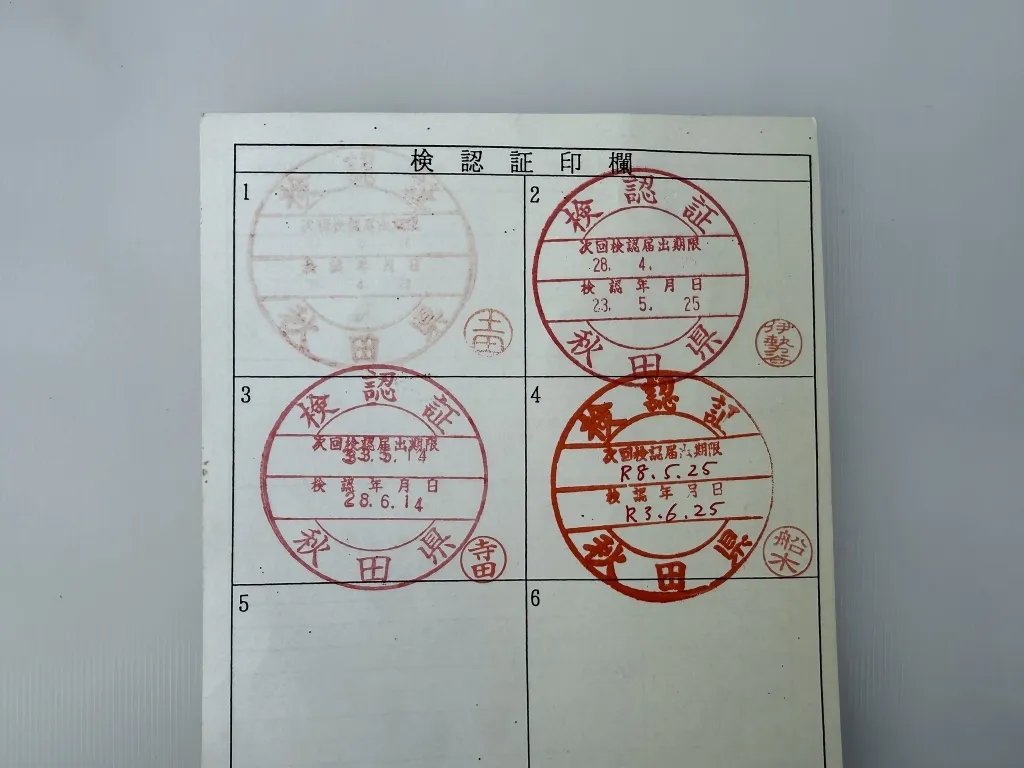 検認証印欄
1
秋田県
2
検認証
次回検認届出期限
28. 4.
検認年月日
23. 5. 25
秋田県
伊勢谷
3
検認証
次回検認届出期限
33.5.14
検認年月日
28.6.14
秋田県
寺田
4
検認証
次回検認届出期限
R8.5.25
検認年月日
R3.6.25
秋田県
船木
5
6